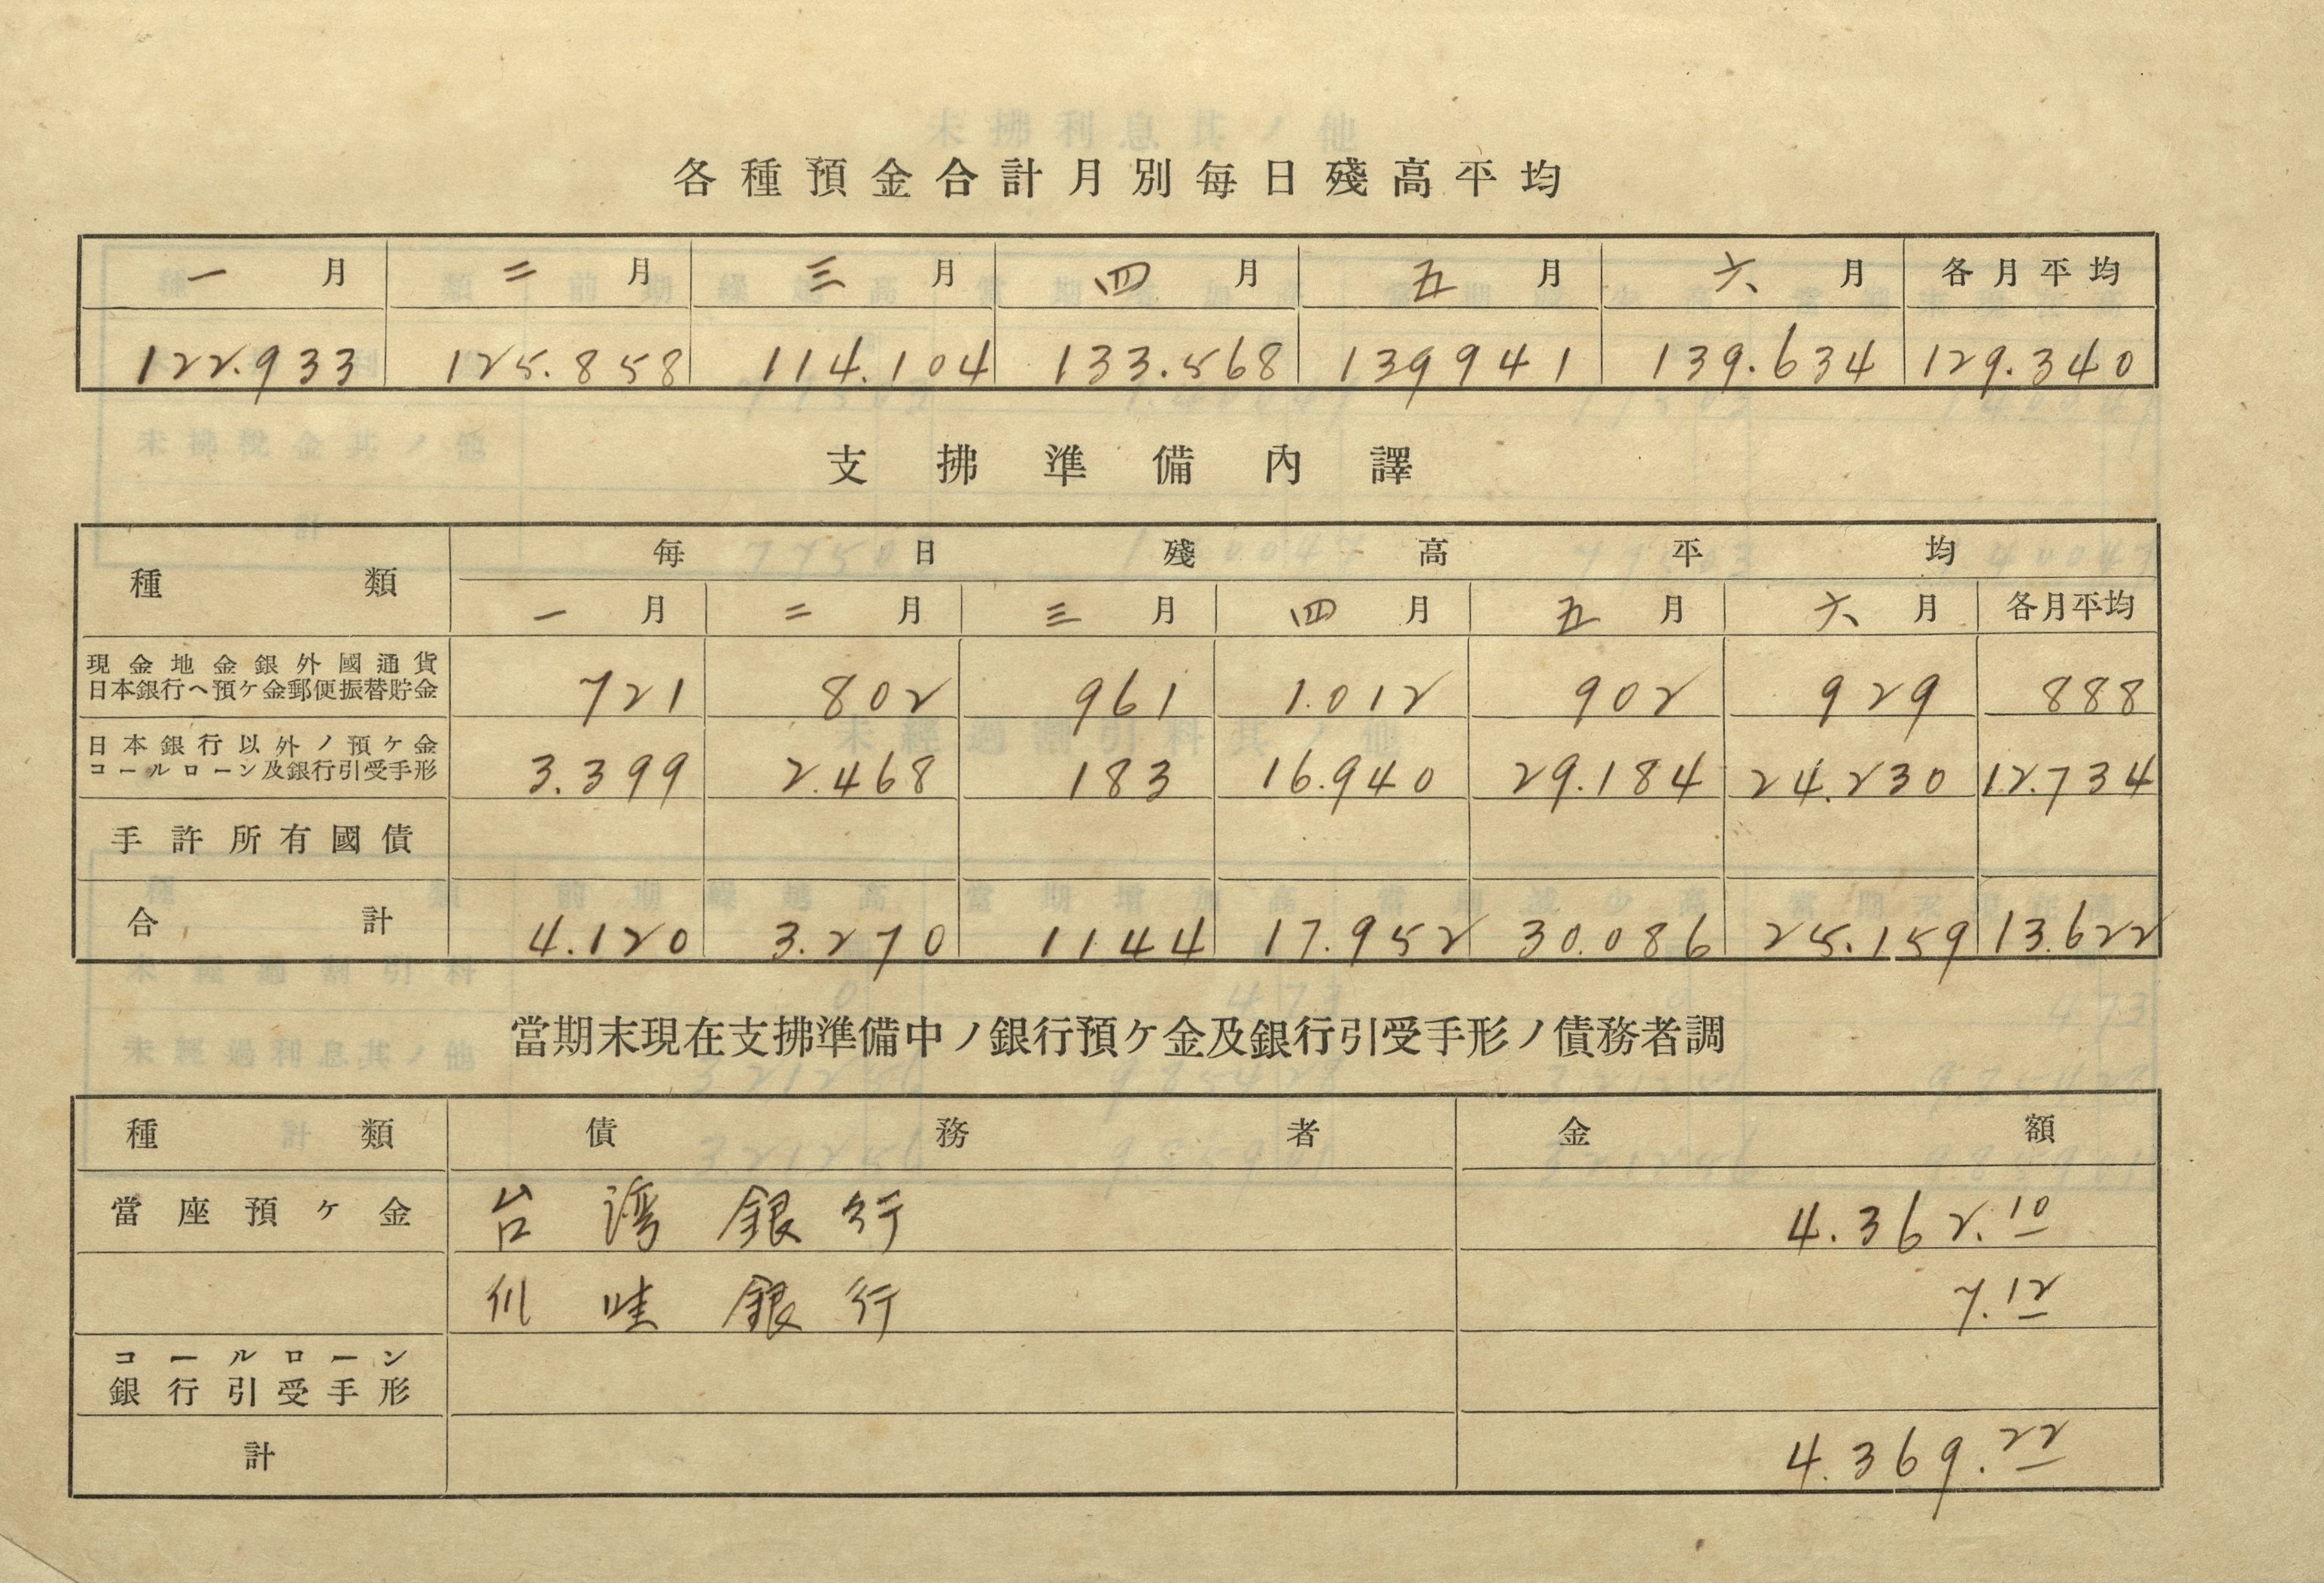 各種預金合計月別每日殘高平均
一月 二月 三月 四月 五月 六月 各月平均
122.933 125.858 114.104 133.568 139941 139.634 129.340
支拂準備內譯
種類 每日殘高平均
一月 二月 三月 四月 五月 六月 各月平均
現金地金銀外國通貨
日本銀行ヘ預ケ金郵便振替貯金 721 802 961 1.012 902 929 888
日本銀行以外ノ預ケ金
コールローン及銀行引受手形 3.399 2.468 183 16.940 29.184 24.230 12.734
手許所有國債
合計 4.120 3.270 1144 17.952 30.086 25.159 13.622
當期末現在支拂準備中ノ銀行預ケ金及銀行引受手形ノ債務者調
種類 債務者 金額
當座預ケ金 台湾銀行 4.362.10
爪哇銀行 7.12
コールローン
銀行引受手形
計 4.369.22